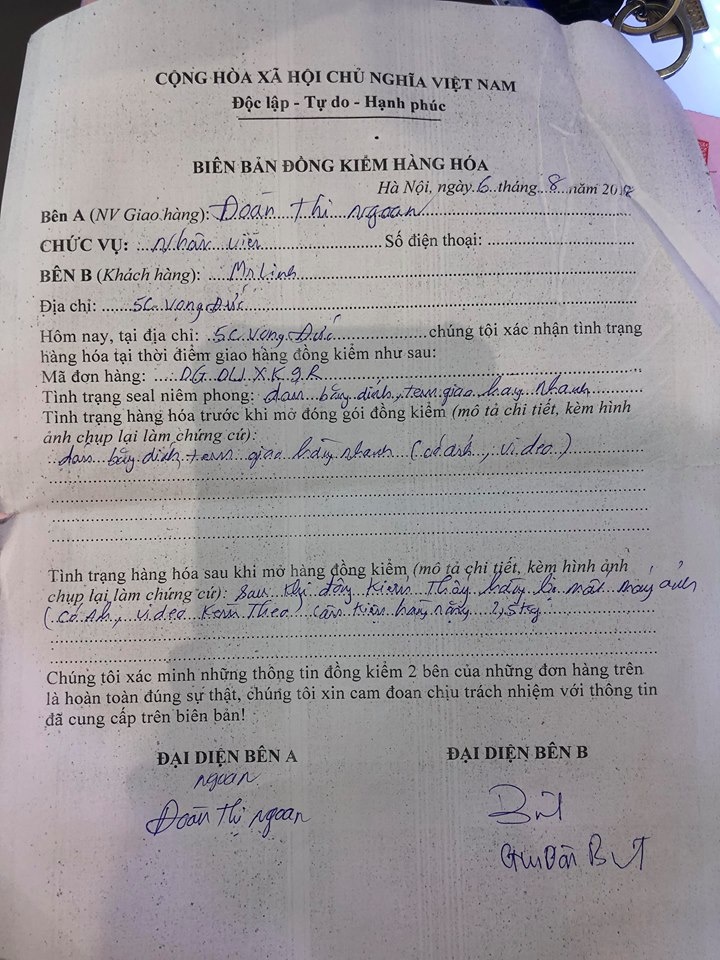 CỘNG HÒA XÃ HỘI CHỦ NGHĨA VIỆT NAM
Độc lập - Tự do - Hạnh phúc
BIÊN BẢN ĐỒNG KIỂM HÀNG HÓA
Hà Nội, ngày 6 tháng 8 năm 2018
Bên A (NV Giao hàng): Đoàn Thị ngoan
CHỨC VỤ: Nhân viên Số điện thoại:
BÊN B (Khách hàng): Mr Linh
Địa chỉ: 5C Vọng Đức
Hôm nay, tại địa chỉ: 5C Vọng Đức chúng tôi xác nhận tình trạng
hàng hóa tại thời điểm giao hàng đồng kiểm như sau:
Mã đơn hàng:
Tình trạng seal niêm phong: dán băng dính, tem giao hàng nhanh
Tình trạng hàng hóa trước khi mở đóng gói đồng kiểm (mô tả chi tiết, kèm hình
ảnh chụp lại làm chứng cứ):
dán băng dính, tem giao hàng nhanh (có ảnh, video)
Tình trạng hàng hóa sau khi mở hàng đồng kiểm (mô tả chi tiết, kèm hình ảnh
chụp lại làm chứng cứ): Sau khi đồng kiểm thấy hàng bị mất máy ảnh
(có ảnh, video kèm theo) cân kiện hàng nặng 2,5kg
Chúng tôi xác minh những thông tin đồng kiểm 2 bên của những đơn hàng trên
là hoàn toàn đúng sự thật, chúng tôi xin cam đoan chịu trách nhiệm với thông tin
đã cung cấp trên biên bản!
ĐẠI DIỆN BÊN A ĐẠI DIỆN BÊN B
ngoan
Đoàn Thị ngoan